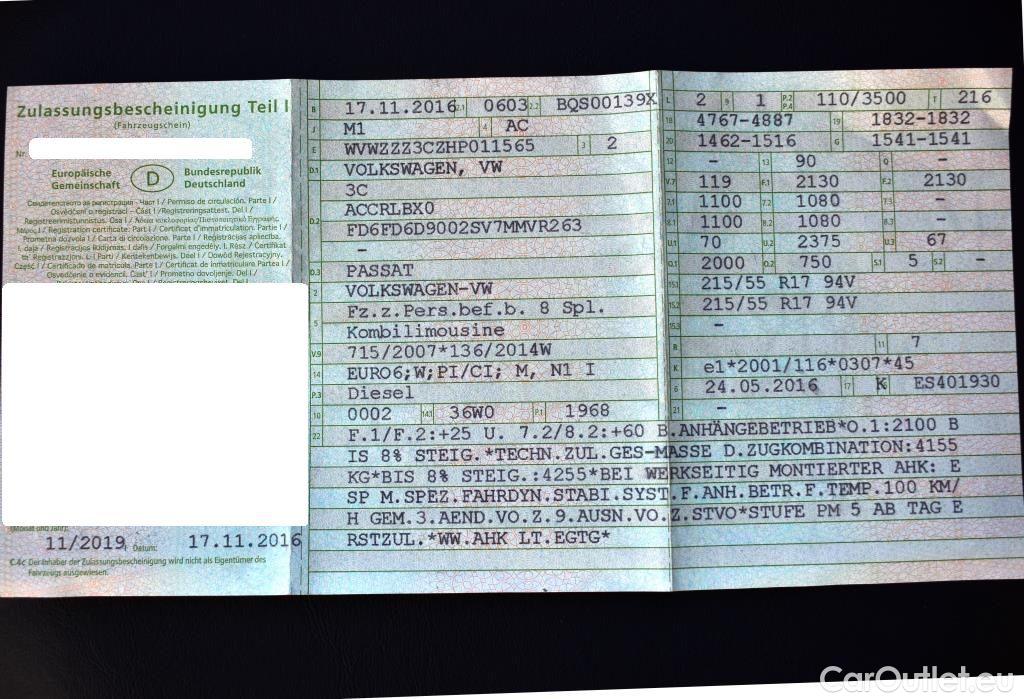 Zulassungsbescheinigung Teil I
(Fahrzeugschein)
Nr.
Europäische Gemeinschaft
D
Bundesrepublik Deutschland
Свидетелство за регистрация - Част I / Permiso de circulación. Parte I /
Osvědčení o registraci - Část I / Registreringsattest. Del I /
(Monat und Jahr):
11/2019 Datum: 17.11.2016
C.4c Der Inhaber der Zulassungsbescheinigung wird nicht als Eigentümer des
Fahrzeugs ausgewiesen.
B 17.11.2016 2.1 0603 2.2 BQS00139X
J M1 4 AC
E WVWZZZ3CZHP011565 3 2
D.1 VOLKSWAGEN, VW
3C
D.2 ACCRLBX0
FD6FD6D9002SV7MMVR263
-
D.3 PASSAT
2 VOLKSWAGEN-VW
5 Fz.z.Pers.bef.b. 8 Spl.
Kombilimousine
V.9 715/2007*136/2014W
14 EURO6;W;PI/CI; M, N1 I
P.3 Diesel
10 0002 14.1 36W0 P.1 1968
L 2 9 1 P.2 P.4 110/3500 T 216
18 4767-4887 19 1832-1832
20 1462-1516 G 1541-1541
12 - 13 90 Q -
V.7 119 F.1 2130 F.2 2130
7.1 1100 7.2 1080 7.3 -
8.1 1100 8.2 1080 8.3 -
U.1 70 U.2 2375 U.3 67
O.1 2000 O.2 750 S.1 5 S.2 -
15.1 215/55 R17 94V
15.2 215/55 R17 94V
15.3 -
R 11 7
K e1*2001/116*0307*45
6 24.05.2016 17 K 16 ES401930
21 -
22 F.1/F.2:+25 U. 7.2/8.2:+60 B.ANHÄNGEBETRIEB*O.1:2100 B
IS 8% STEIG.*TECHN.ZUL.GES-MASSE D.ZUGKOMBINATION:4155
KG*BIS 8% STEIG.:4255*BEI WERKSEITIG MONTIERTER AHK: E
SP M.SPEZ.FAHRDYN.STABI.SYST.F.ANH.BETR.F.TEMP.100 KM/
H GEM.3.AEND.VO.Z.9.AUSN.VO.Z.STVO*STUFE PM 5 AB TAG E
RSTZUL.*WW.AHK LT.EGTG*
CarOutlet.eu